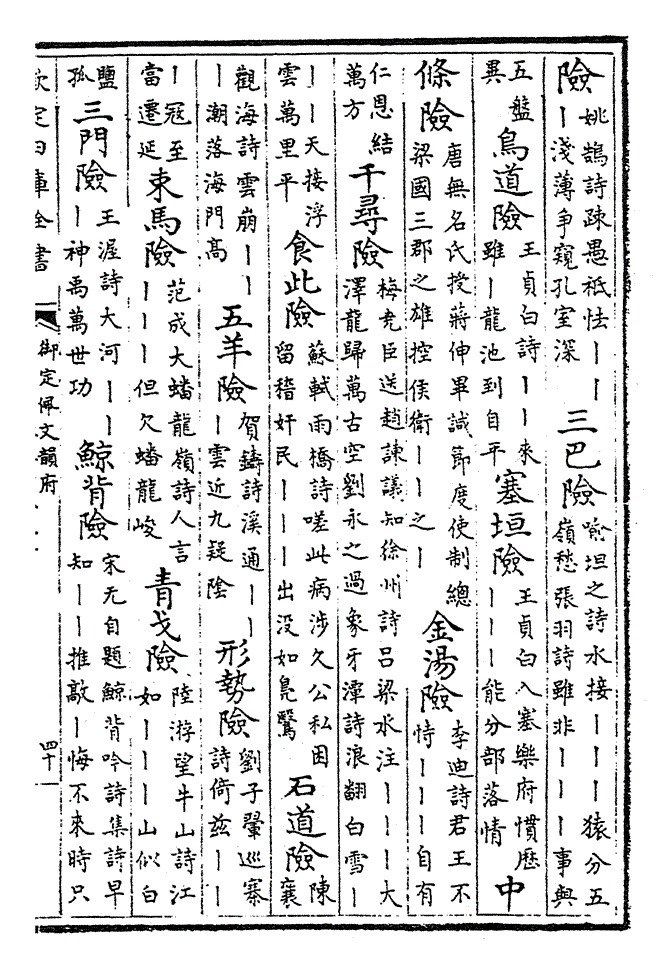 險姚鵠詩疎愚祗怯｜｜｜淺薄爭窺孔室深三巴險喻坦之詩水接｜｜｜猿分五嶺愁張羽詩雖非｜｜｜事與
五盤異鳥道險王貞白詩｜｜來雖｜龍池到自平塞垣險王貞白入塞樂府慣歷｜｜｜能分部落情中
條險唐無名氏授蔣伸畢諴節度使制總梁國三郡之雄控侯衛｜｜之｜金湯險李迪詩君王不恃｜｜｜自有
仁恩結萬方千尋險梅堯臣送趙諫議知徐州詩呂梁水注｜｜｜大澤龍歸萬古空劉永之過象牙潭詩浪翻白雪｜
｜｜天接浮雲萬里平食此險蘇軾雨橋詩嗟此病涉久公私困留稽奸民｜｜｜出没如鳧鷖石道險陳襄
觀海詩雲崩｜｜｜潮落海門高五羊險賀鑄詩溪通｜｜｜雲近九疑陰形勢險劉子翬巡寨詩倚兹｜｜
｜冦至當遷延束馬險范成大蟠龍嶺詩人言｜｜｜但欠蟠龍峻青戈險陸游望牛山詩江如｜｜｜山似白
鹽孤三門險王渥詩大河｜｜｜神禹萬世功鯨背險宋无自題鯨背吟詩集詩早知｜｜推敲｜悔不來時只
欽定四庫全書 御定佩文韻府 四十